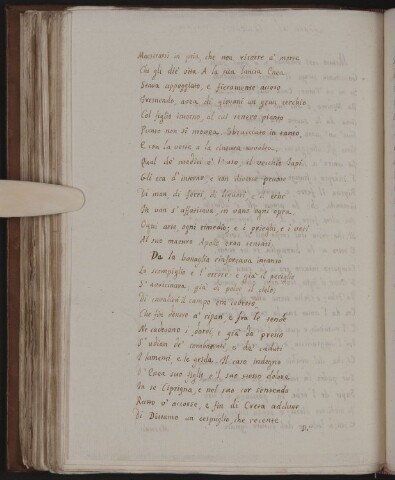 Mostrarsi in pria, che non ricorre a morte
Chi gli diè vita. A la sua lancia Enea
Stava appoggiato, e fieramente acceso
Fremendo, avea di giovani un gran cerchio
Col figlio intorno, al cui tenero pianto
Punto non si movea. Sbracciato in tanto,
E con la veste a la cintura avvolta,
Qual de' medici è l'uso, il vecchio Iapi
Gli era d'intorno; e con diverse prove
Di man, di ferri, di liquori, e d'erbe
In van s'affaticava, in vano ogni opra,
Ogni arte, ogni rimedio, e i prieghi, e i voti
Al suo maestro Apollo eran tentati.
Da la battaglia rinforzava intanto
Lo scompiglio e l'orrore: e già il periglio
S'avvicinava, già di polve il cielo,
Di cavalieri il campo era coverto
Che fin dentro a' ripari e fra le tende
Ne cadevano i dardi, e già da presso
S'udian de' combattenti, e de' caduti
I lamenti, e le grida. Il caso indegno
D'Enea suo figlio, e 'l suo stesso dolore
In se Ciprigna, e nel suo cor sentendo
Ratto v'accorse, e fin di Creta addusse
Di Dittamo un cespuglio, che recente
Di